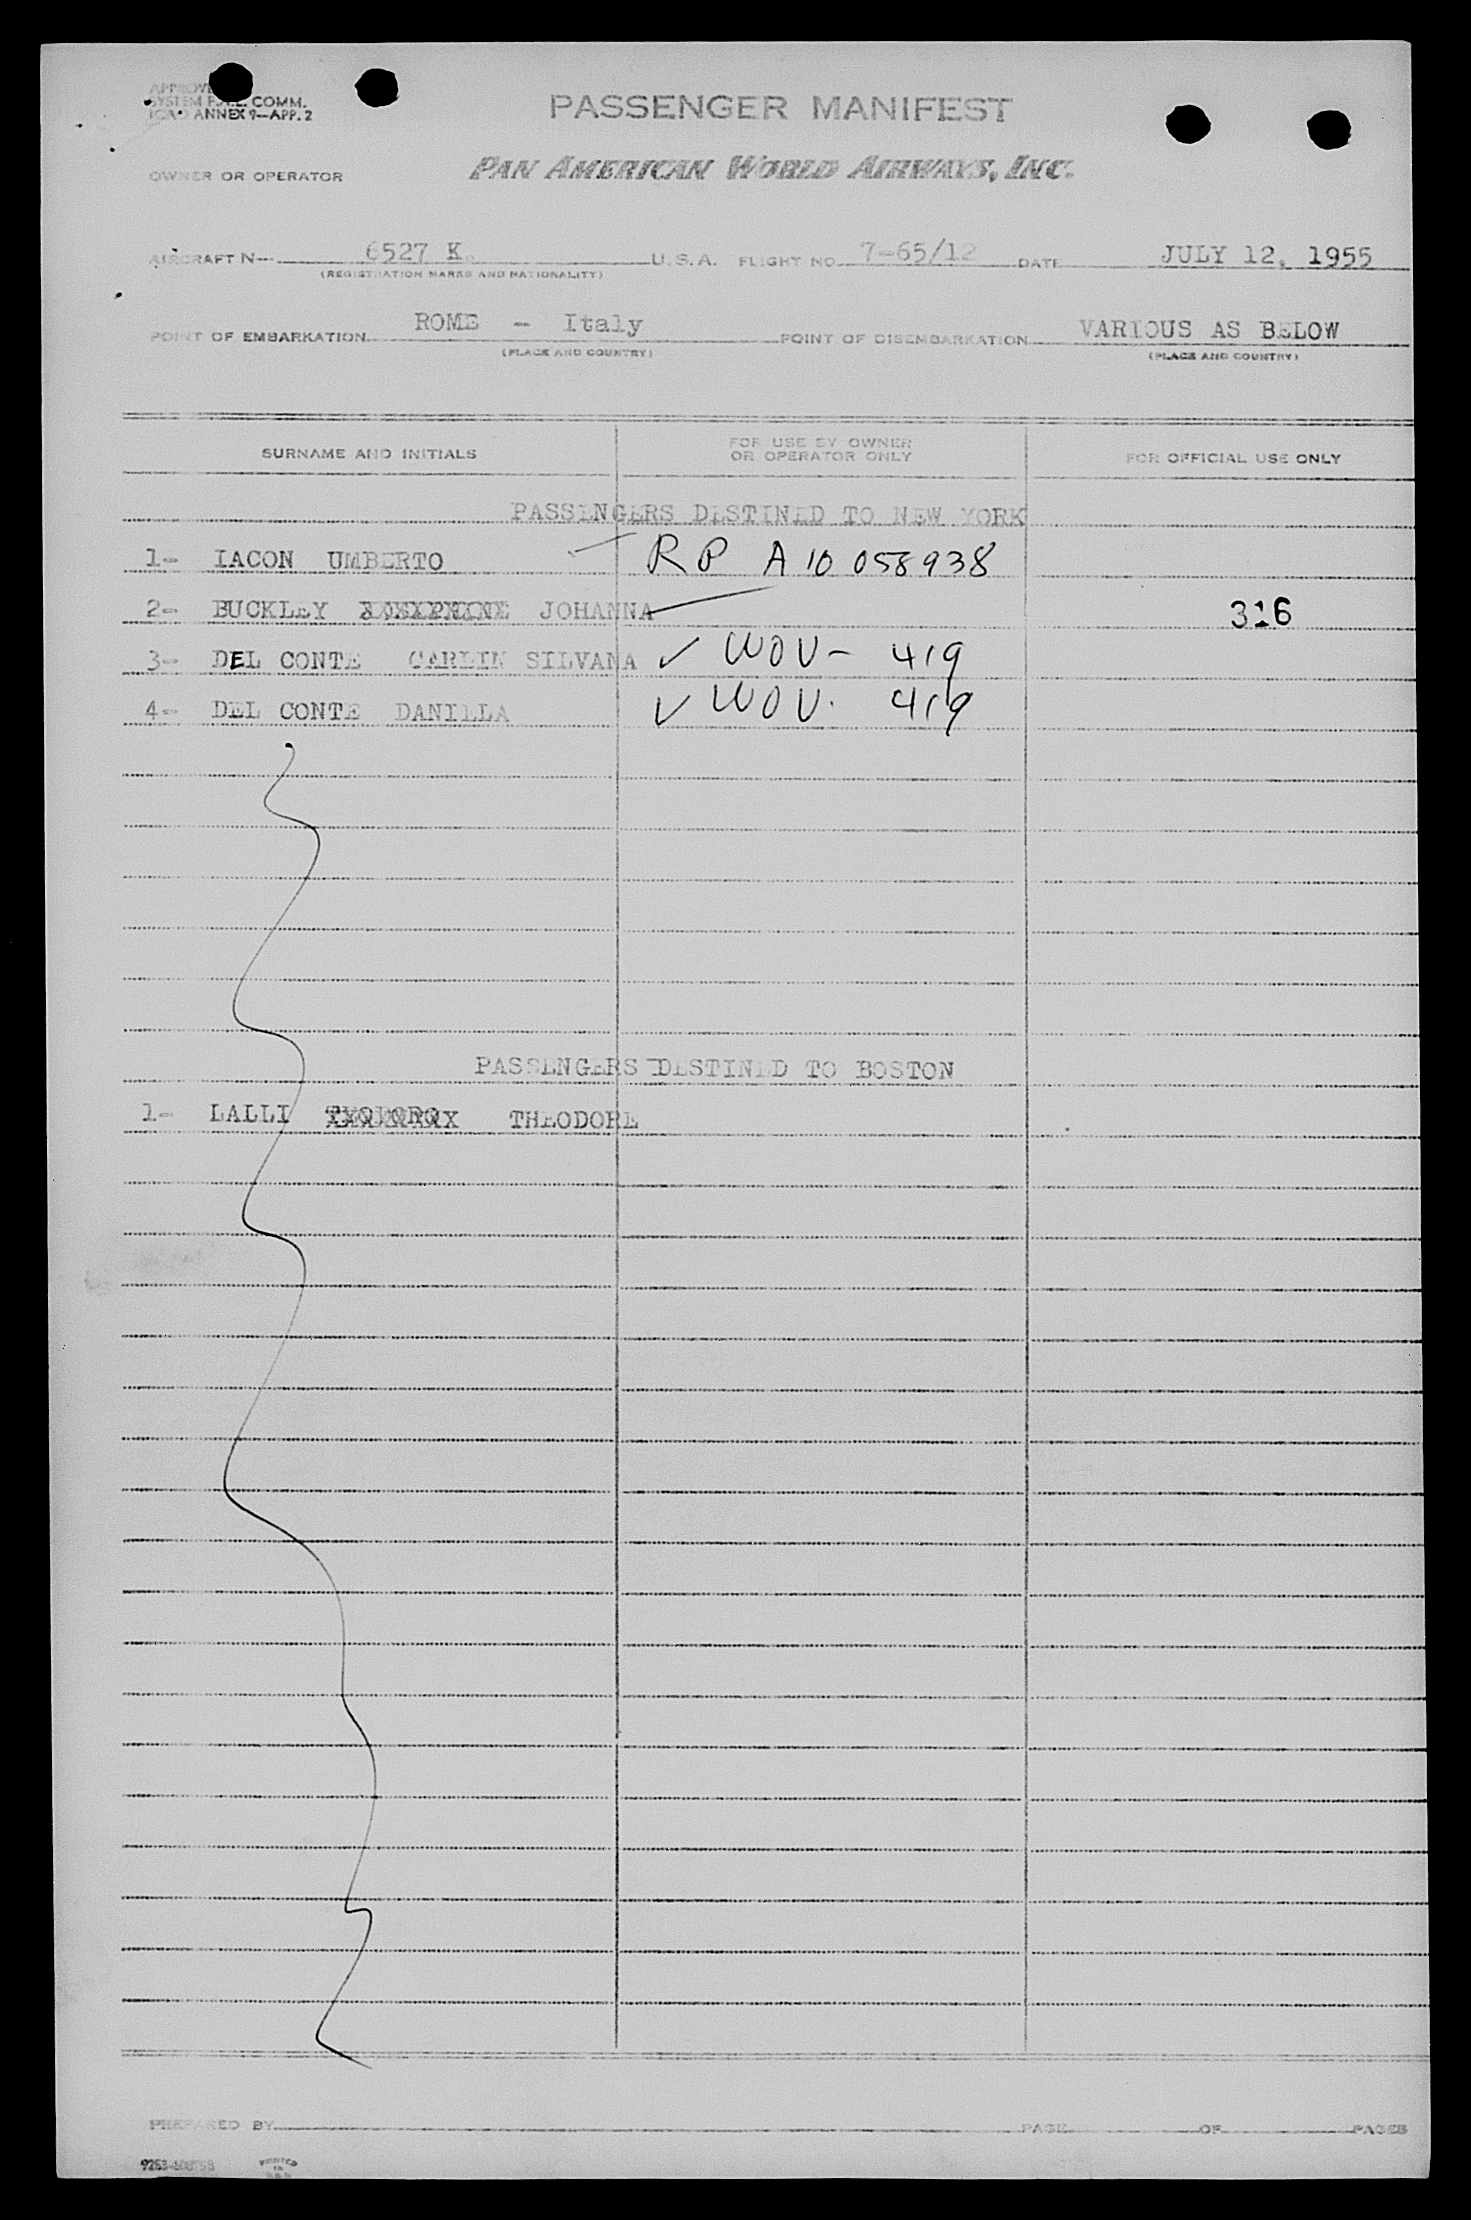 SYSTEM F.A.L. COMM.
ICAO ANNEX 9—APP. 2
PASSENGER MANIFEST
OWNER OR OPERATOR
PAN AMERICAN WORLD AIRWAYS, INC.
AIRCRAFT N— 6527 K. U.S.A. FLIGHT NO. 7-65/12 DATE JULY 12, 1955
(REGISTRATION MARKS AND NATIONALITY)
POINT OF EMBARKATION ROME - Italy POINT OF DISEMBARKATION VARIOUS AS BELOW
(PLACE AND COUNTRY) (PLACE AND COUNTRY)
SURNAME AND INITIALS FOR USE BY OWNER OR OPERATOR ONLY FOR OFFICIAL USE ONLY
PASSENGERS DESTINED TO NEW YORK
1- IACON UMBERTO RP A 10 058938
2- BUCKLEY JOHANNA 316
3- DEL CONTE CARLIN SILVANA ✓ WOV- 419
4- DEL CONTE DANILLA ✓ WOV. 419
PASSENGERS DESTINED TO BOSTON
1- LALLI THEODORE
PREPARED BY PAGE OF PAGES
PRINTED IN